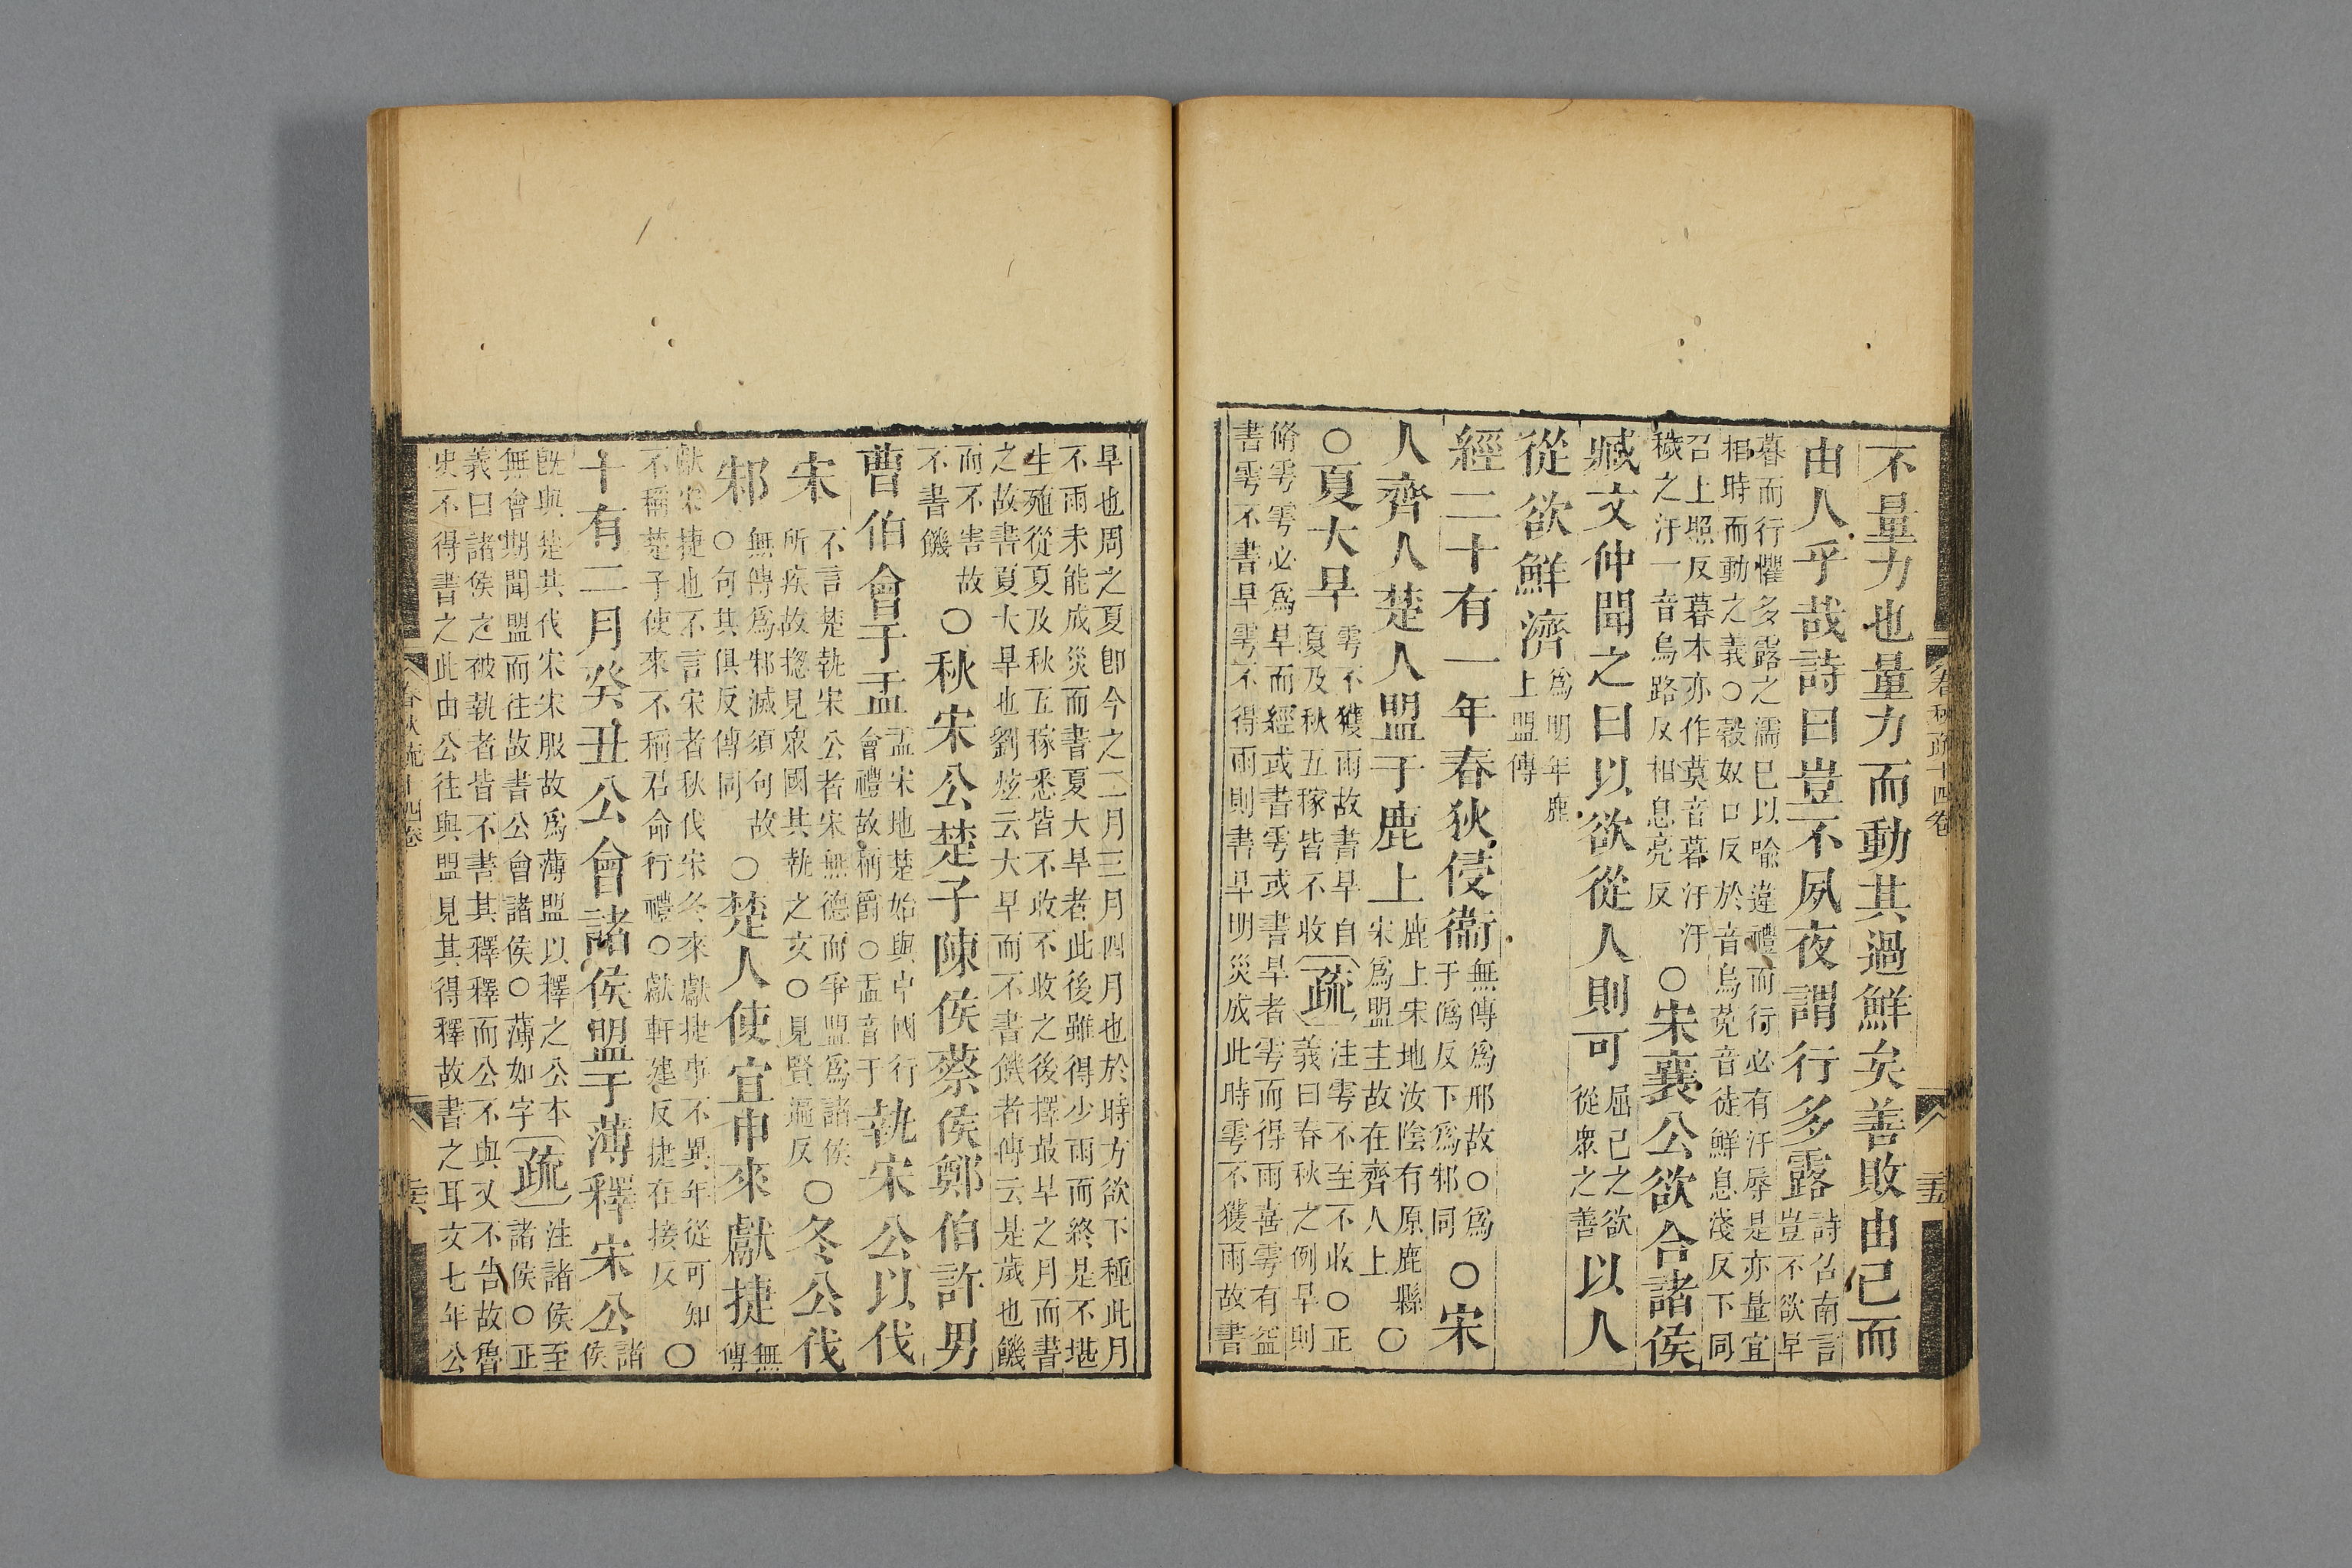 不量力也量力而動其過鮮矣善敗由己而
由人乎哉詩曰豈不夙夜謂行多露
詩召南言
豈不欲早
暮而行懼多露之濡已以喻違禮而行必有汙辱是亦量宜
相時而動之義○穀奴口反於音烏菟音徒鮮息淺反下同
召上照反暮本亦作莫音暮汙汙
穢之汙一音烏路反相息亮反
○宋襄公欲合諸侯
臧文仲聞之曰以欲從人則可
屈己之欲
從衆之善
以人
從欲鮮濟
爲明年鹿
上盟傳
經二十有一年春狄侵衞
無傳爲邢故○爲
于僞反下爲邾同
○宋
人齊人楚人盟于鹿上
鹿上宋地汝陰有原鹿縣
宋爲盟主故在齊人上
○
○夏大旱
雩不獲雨故書旱自
夏及秋五稼皆不收
疏
注雩不至不收○正
義曰春秋之例旱則
脩雩雩必爲旱而經或書雩或書旱者雩而得雨喜雩有益
書雩不書旱雩不得雨則書旱明災成此時雩不獲雨故書
春秋疏十四卷
二十五
旱也周之夏卽今之二月三月四月也於時方欲下種此月
不雨未能成災而書夏大旱者此後雖得少雨而終是不堪
生殖從夏及秋五稼悉皆不收不收之後擇最旱之月而書
之故書夏大旱也劉炫云大旱而不書饑者傳云是歲也饑
而不害故
不書饑
○秋宋公楚子陳侯蔡侯鄭伯許男
曹伯會于盂
盂宋地楚始與中國行
會禮故稱爵○盂音于
執宋公以伐
宋
不言楚執宋公者宋無德而爭盟爲諸侯
所疾故揔見衆國共執之文○見賢遍反
○冬公伐
邾
無傳爲邾滅須句故
○句其俱反傳同
○楚人使宜申來獻捷
無
傳
獻宋捷也不言宋者秋伐宋冬來獻捷事不異年從可知
不稱楚子使來不稱君命行禮○獻軒建反捷在接反
○
十有二月癸丑公會諸侯盟于薄釋宋公
諸
侯
旣與楚共伐宋宋服故爲薄盟以釋之公本
無會期聞盟而往故書公會諸侯○薄如字
疏
注諸侯至
諸侯○正
義曰諸侯之被執者皆不書其釋釋而公不與又不告故魯
史不得書之此由公往與盟見其得釋故書之耳文七年公
春秋疏十四卷
二十六